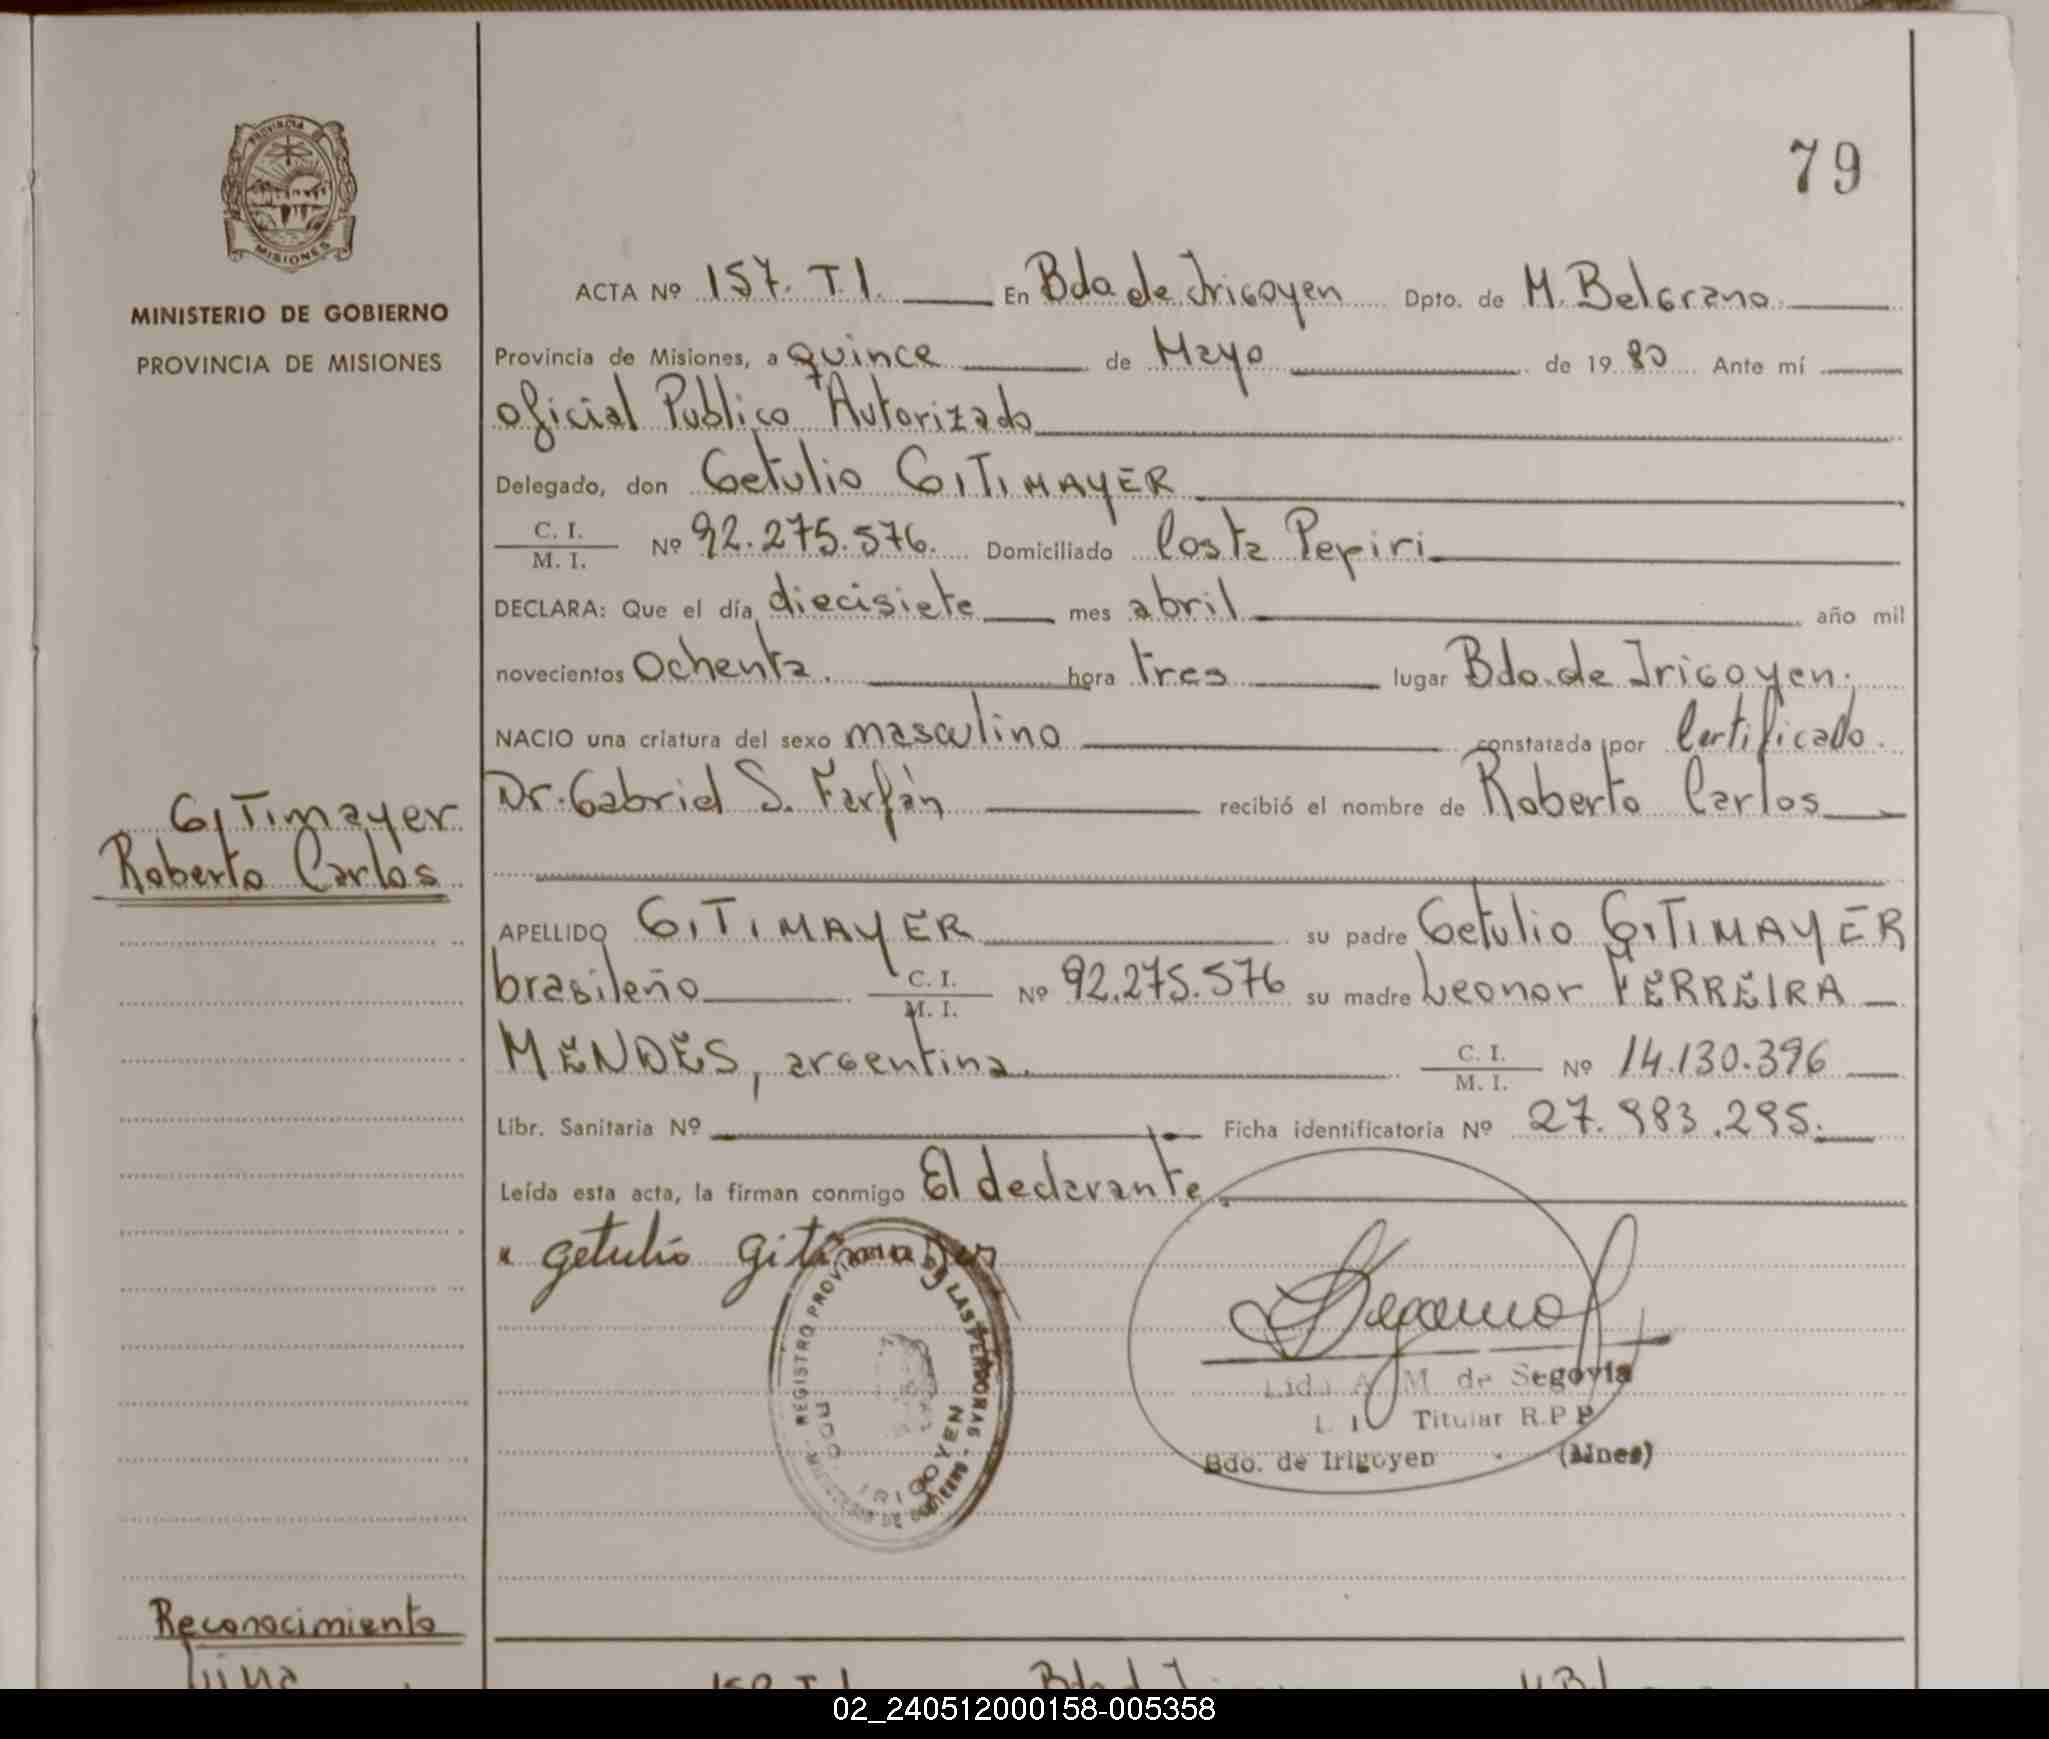 79
PROVINCIA
MISIONES
MINISTERIO DE GOBIERNO
PROVINCIA DE MISIONES
ACTA Nº 157. T.I. En Bdo de Irigoyen Dpto. de M. Belgrano
Provincia de Misiones, a quince de Mayo de 19 80 Ante mí
Oficial Publico Autorizado
Delegado, don Getulio GITIMAYER
C. I.
M. I. Nº 92.275.576. Domiciliado Costa Pepiri
DECLARA: Que el día diecisiete mes abril año mil
novecientos Ochenta. hora tres lugar Bdo. de Irigoyen.
NACIO una criatura del sexo masculino constatada por Certificado.
Dr. Gabriel S. Farfán recibió el nombre de Roberto Carlos
GITimayer
Roberto Carlos
APELLIDO GITIMAYER su padre Getulio GITIMAYER
brasileño C. I.
M. I. Nº 92.275.576 su madre Leonor FERREIRA
MENDES, argentina. C. I.
M. I. Nº 14.130.396
Libr. Sanitaria Nº Ficha identificatoria Nº 27.983.295.
Leída esta acta, la firman conmigo El declarante.
Getulio gitimayer
REGISTRO PROVINCIAL DE LAS PERSONAS
BDO IRIGOYEN
M. de Segovia
Titular R.P.P
Bdo. de Irigoyen (Mnes)
Reconocimiento
02_240512000158-005358